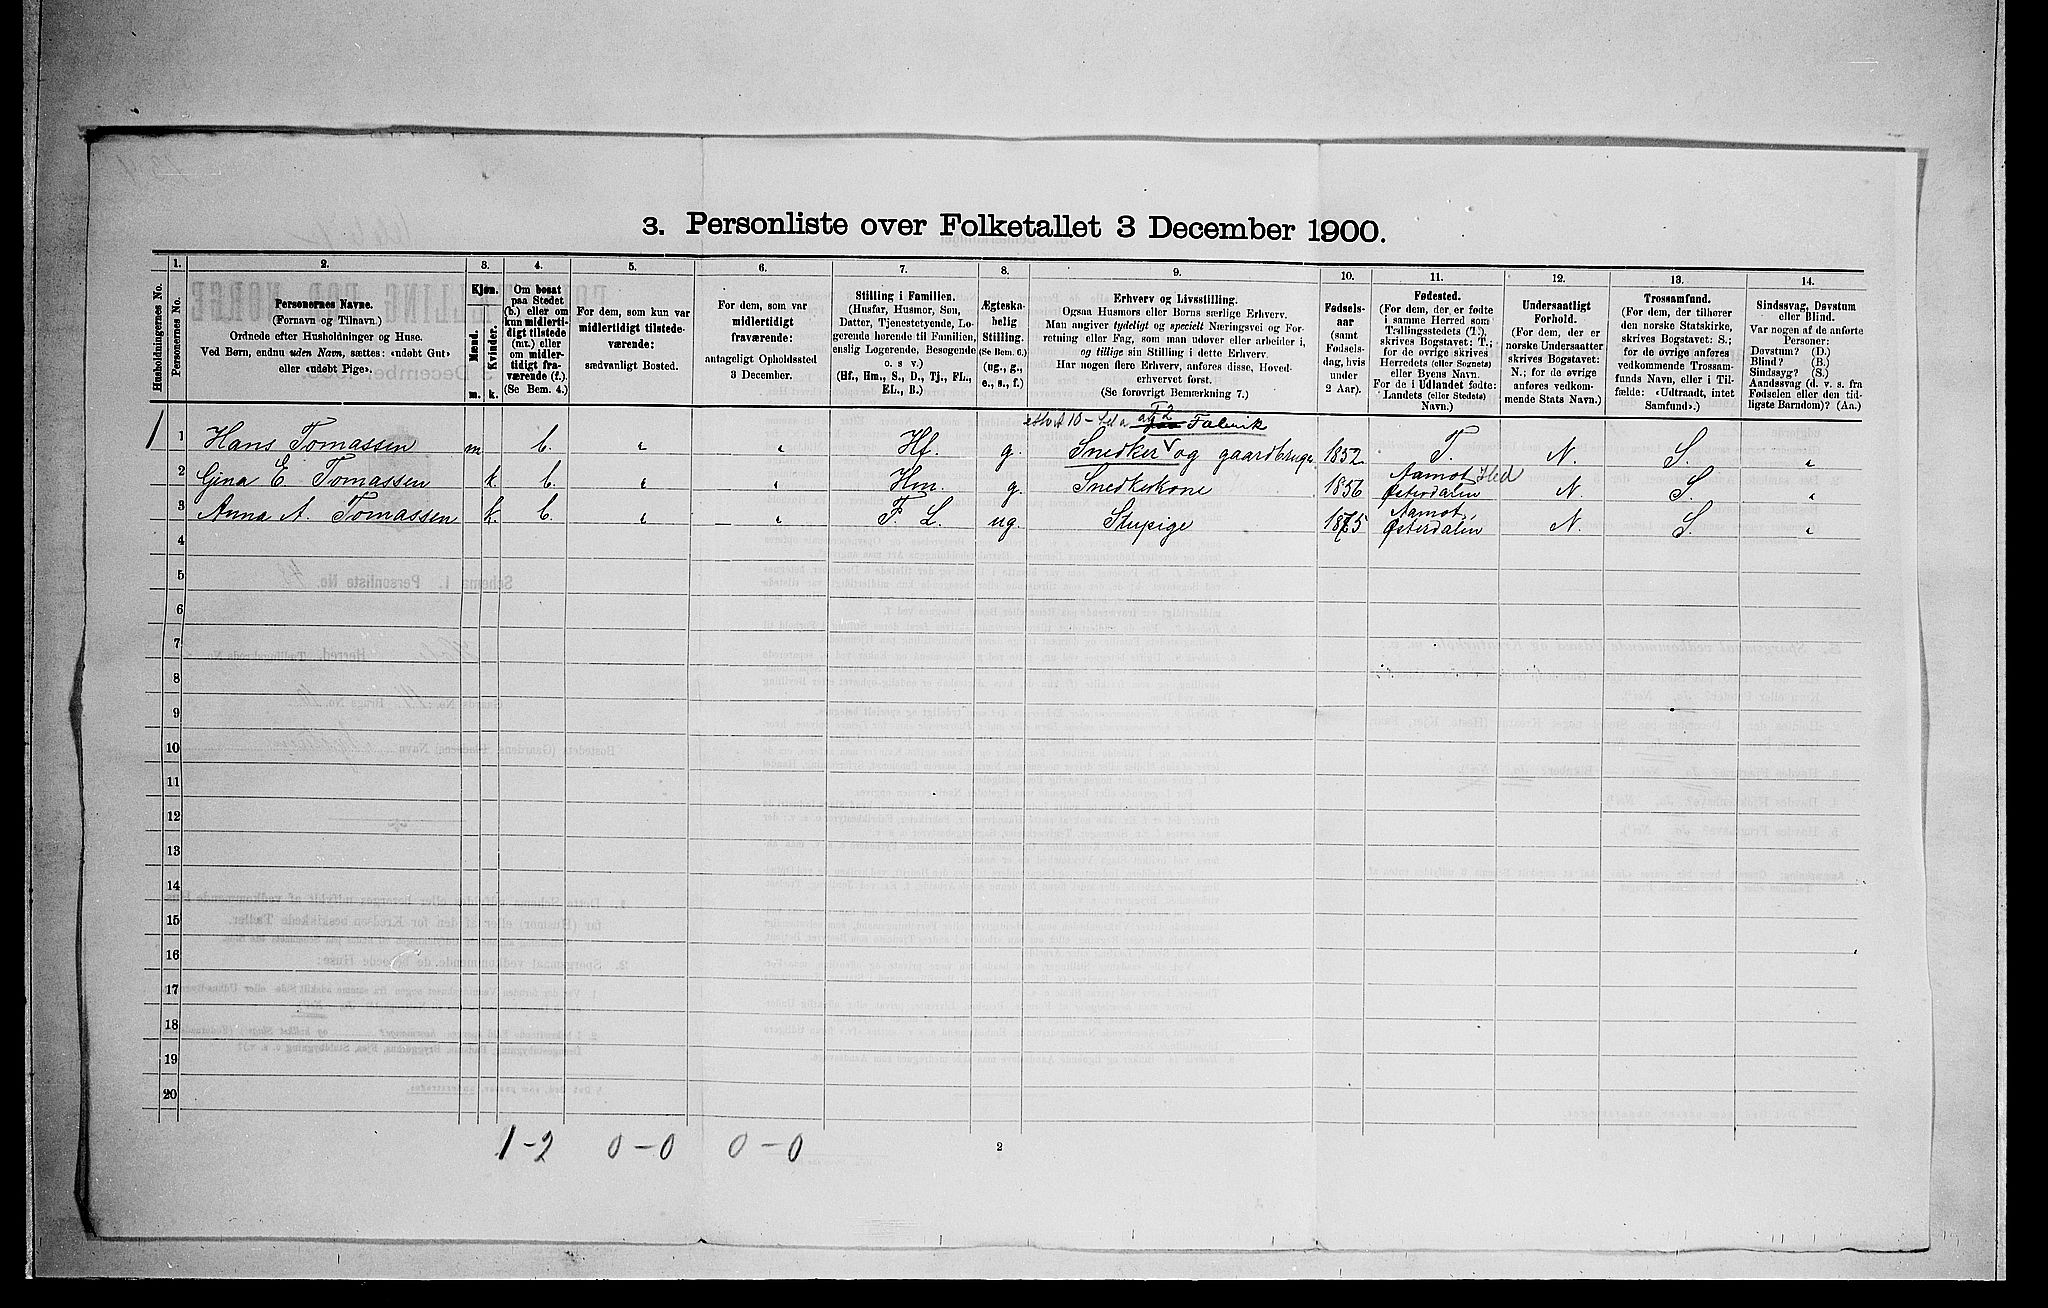 3. Personliste over Folketallet 3 December 1900.
1. 2. 3. 4. 5. 6. 7. 8. 9. 10. 11. 12. 13. 14.
Husholdningernes No.
Personernes No.
Personernes Navne.
(Fornavn og Tilnavn.)
Ordnede efter Husholdninger og Huse.
Ved Børn, endnu uden Navn, sættes: «udøbt Gut»
eller «udøbt Pige».
Kjøn.
Mænd.
Kvinder.
m. k.
Om bosat
paa Stedet
(b.) eller om
kun midlerti-
digt tilstede
(mt.) eller
om midler-
tidigt fra-
værende (f.)
(Se Bem. 4.)
For dem, som kun var
midlertidigt tilstede-
værende:
sædvanligt Bosted.
For dem, som var
midlertidigt
fraværende:
antageligt Opholdssted
3 December.
Stilling i Familien.
(Husfar, Husmor, Søn,
Datter, Tjenestetyende, Lo-
gerende hørende til Familien,
enslig Logerende, Besøgende
o. s v.)
(Hf., Hm., S., D., Tj., FL.,
EL., B.)
Ægteska-
belig
Stilling.
(Se Bem. 6.)
(ug., g.,
e., s., f.)
Erhverv og Livsstilling.
Ogsaa Husmors eller Børns særlige Erhverv.
Man angiver tydeligt og specielt Næringsvei og For-
retning eller Fag, som man udøver eller arbeider i,
og tillige sin Stilling i dette Erhverv.
Har nogen flere Erhverv, anføres disse, Hoved-
erhvervet først.
(Se forøvrigt Bemærkning 7.)
Fødsels-
aar
(samt
Fødsels-
dag, hvis
under
2 Aar).
Fødested.
(For dem, der er fødte
i samme Herred som
Tællingsstedets (T.),
skrives Bogstavet: T.;
for de øvrige skrives
Herredets (eller Sognets)
eller Byens Navn.
For de i Udlandet fødte:
Landets (eller Stedets)
Navn.)
Undersaatligt
Forhold.
(For dem, der er
norske Undersaatter
skrives Bogstavet:
N.; for de øvrige
anføres vedkom-
mende Stats Navn.)
Trossamfund.
(For dem, der tilhører
den norske Statskirke,
skrives Bogstavet: S.;
for de øvrige anføres
vedkommende Trossam-
funds Navn, eller i Til-
fælde: «Udtraadt, intet
Samfund».)
Sindssvag, Døvstum
eller Blind.
Var nogen af de anførte
Personer:
Døvstum? (D.)
Blind? (B.)
Sindssyg? (S.)
Aandssvag (d. v. s. fra
Fødselen eller den tid-
ligste Barndom)? (Aa.)
Fabrik
1 1 Hans Tomassen m b. " " Hf. g. Snedker og gaardbruger 1852 T. N. S. "
2 Gina E Tomassen k. b. " " Hm. g. Snedkerkone 1856 Aamot Hed Østerdalen N. S. "
3 Anna A. Tomassen k. b. " " F L. ug. Stupige 1875 Aamot, Østerdalen N. S. "
4
5
6
7
8
9
10
11
12
13
14
15
16
17
18
19
20
1-2 0-0 0-0
2